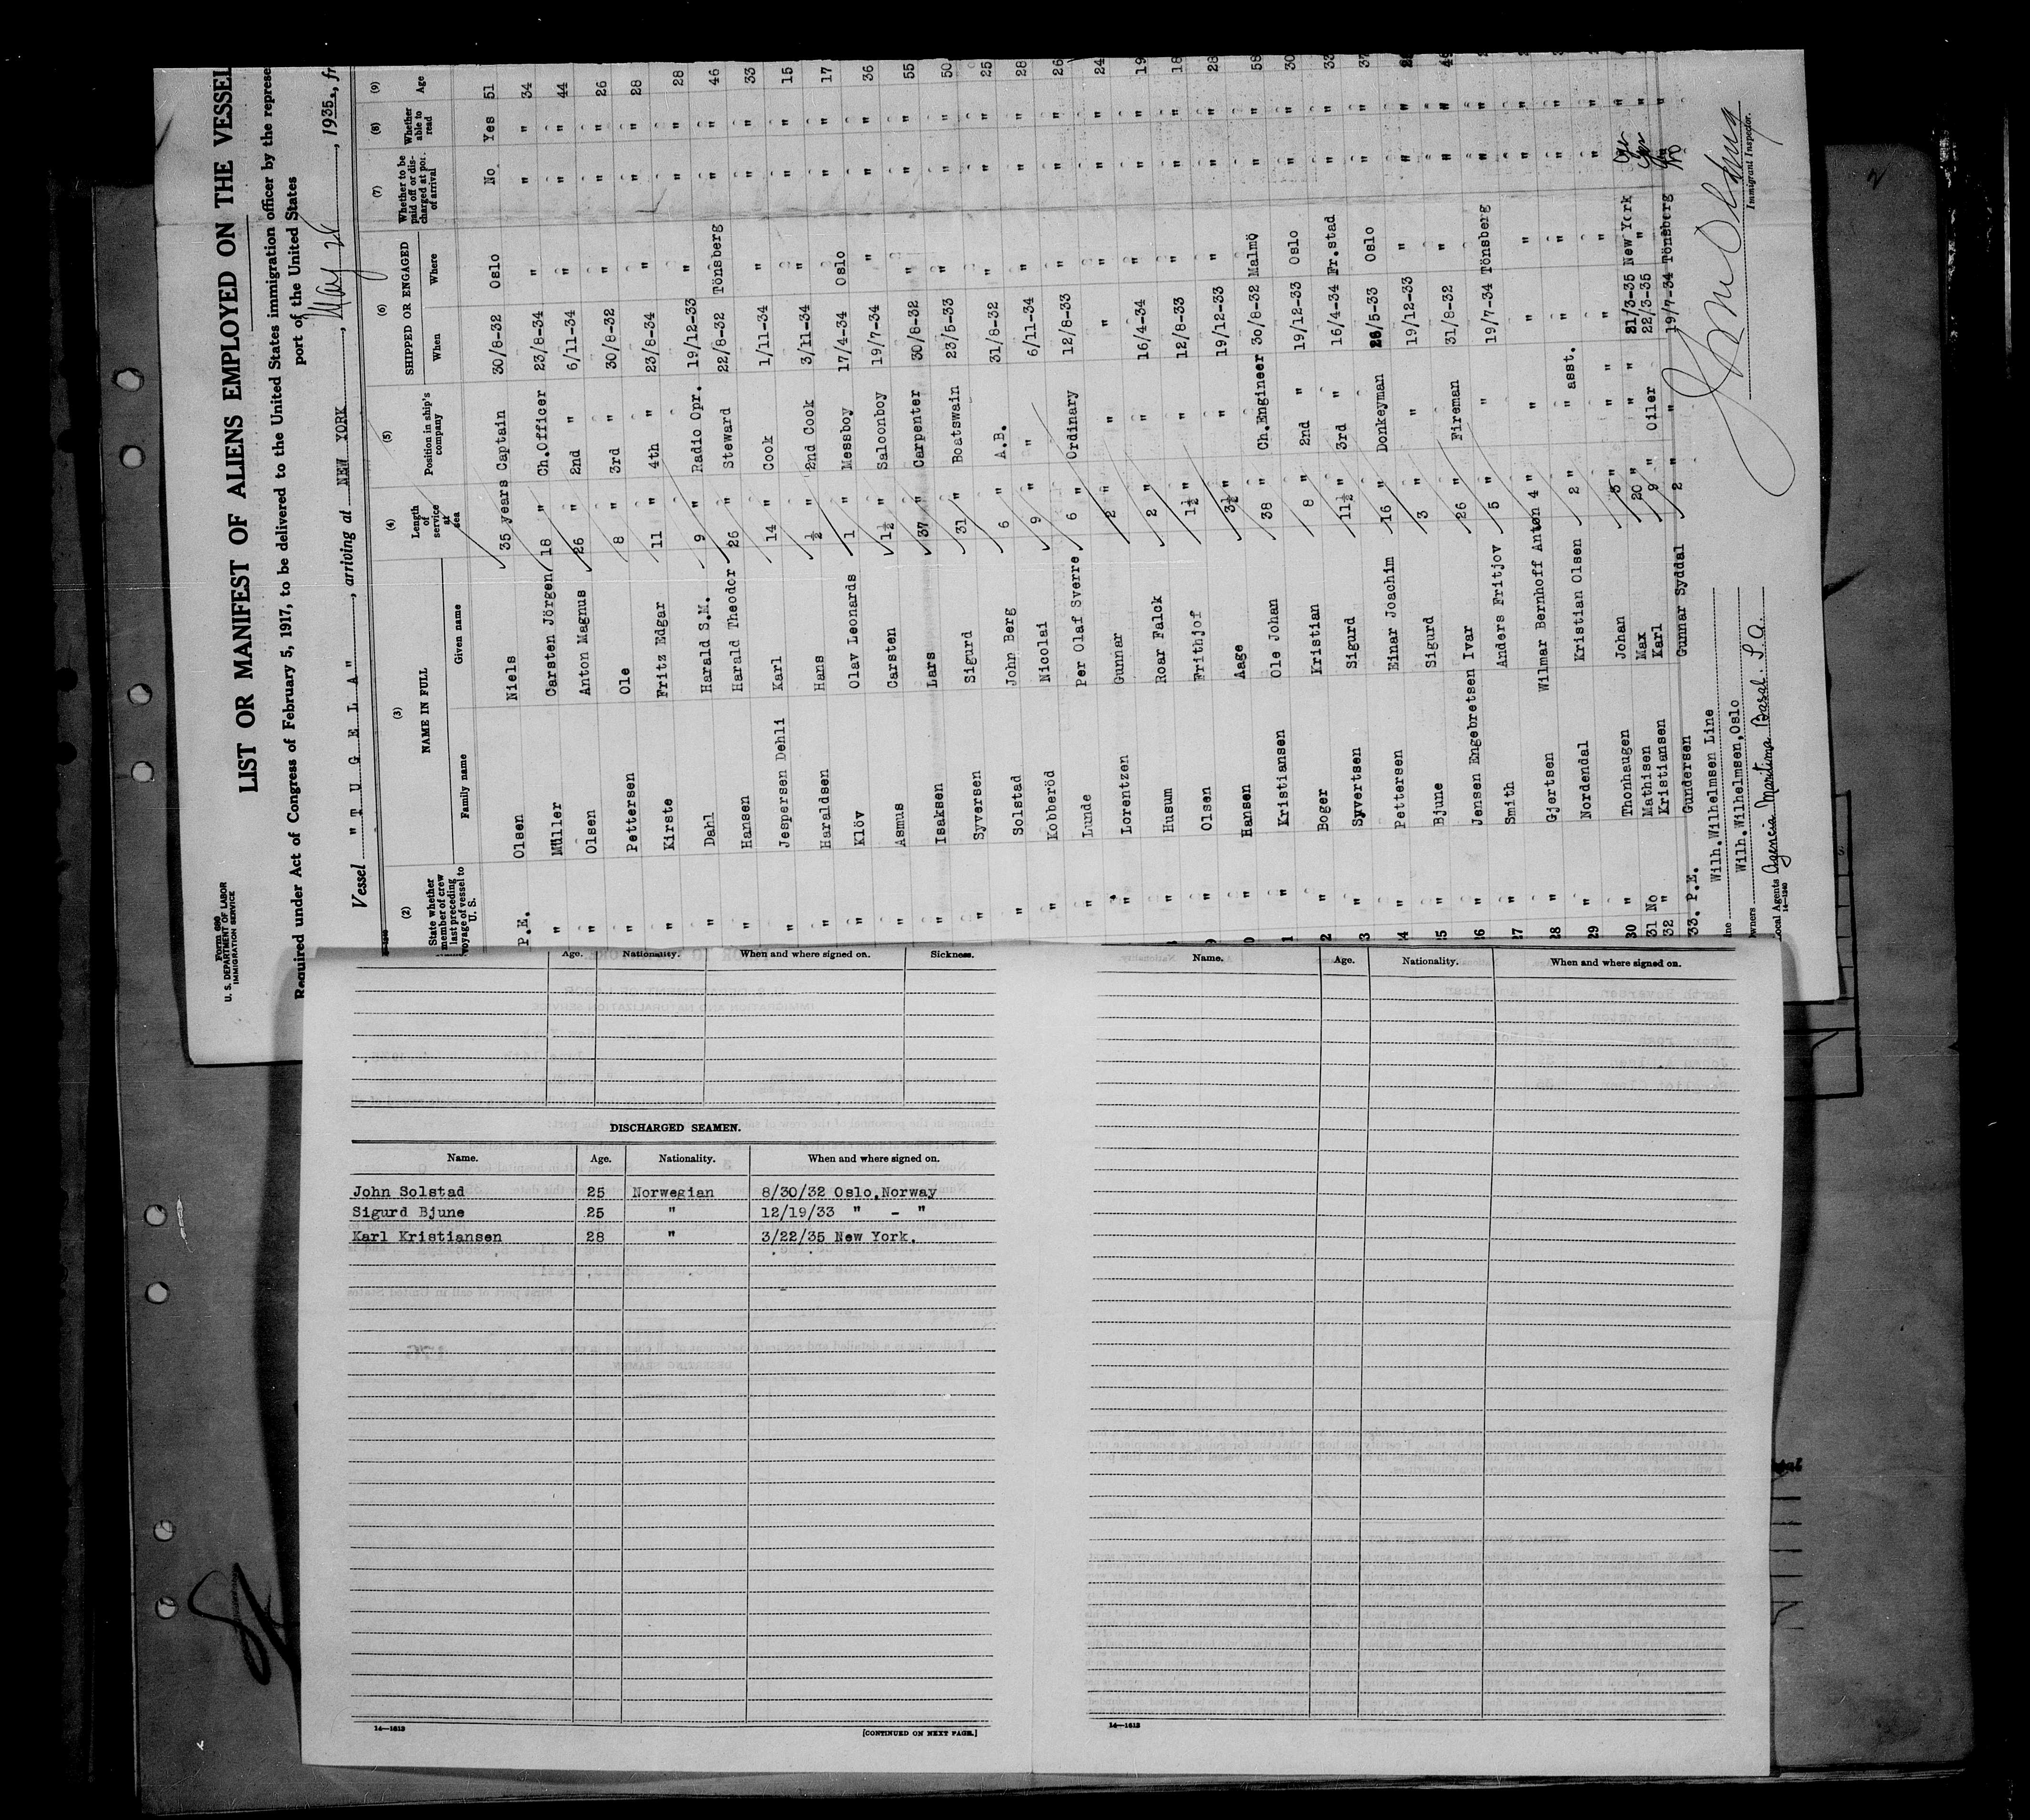 Form 689
U. S. DEPARTMENT OF LABOR
IMMIGRATION SERVICE
LIST OR MANIFEST OF ALIENS EMPLOYED ON THE VESSEL
Required under Act of Congress of February 5, 1917, to be delivered to the United States immigration officer by the represe
port of the United States
Vessel "T U G E L A", arriving at NEW YORK, May 28, 1935, fr
(2) (3) (4) (5) (6) (7) (8) (9)
State whether member of crew last preceding voyage of vessel to U. S. NAME IN FULL Length of service at sea Position in ship's company SHIPPED OR ENGAGED Whether to be paid off or discharged at port of arrival Whether able to read Age
Family name Given name When Where
P.E. Olsen Niels 35 years Captain 30/8-32 Oslo No Yes 51
" Müller Carsten Jörgen 18 " Ch.Officer 23/8-34 " " " 34
" Olsen Anton Magnus 26 " 2nd " 6/11-34 " " " 44
" Pettersen Ole 8 " 3rd " 30/8-32 " " " 26
" Kirste Fritz Edgar 11 " 4th " 23/8-34 " " " 28
" Dahl Harald S.M. 9 " Radio Opr. 19/12-33 " " " 28
" Hansen Harald Theodor 26 " Steward 22/8-32 Tönsberg " " 46
" Jespersen Dehli Karl 14 " Cook 1/11-34 " " " 33
" Haraldsen Hans ½ " 2nd Cook 3/11-34 " " " 15
" Klöv Olav Leonards 1 " Messboy 17/4-34 Oslo " " 17
" Asmus Carsten 1½ " Saloonboy 19/7-34 " " " 36
" Isaksen Lars 37 " Carpenter 30/8-32 " " " 55
" Syversen Sigurd 31 " Boatswain 23/5-33 " " " 50
" Solstad John Berg 6 " A.B. 31/8-32 " " " 25
" Kobberöd Nicolai 9 " " 6/11-34 " " " 28
" Lunde Per Olaf Sverre 6 " Ordinary 12/8-33 " " " 26
" Lorentzen Gunnar 2 " " " " " " 24
" Husum Roar Falck 2 " " 16/4-34 " " " 19
" Olsen Frithjof 1½ " " 12/8-33 " " " 18
" Hansen Aage 3½ " " 19/12-33 " " " 28
" Kristiansen Ole Johan 38 " Ch.Engineer 30/8-32 Malmö " " 58
" Boger Kristian 8 " 2nd " 19/12-33 Oslo " " 30
" Syvertsen Sigurd 11½ " 3rd " 16/4-34 Fr.stad " " 33
" Pettersen Einar Joachim 16 " Donkeyman 26/5-33 Oslo " " 37
" Bjune Sigurd 3 " " 19/12-33 " " "
" Jensen Engebretsen Ivar 26 " Fireman 31/8-32 " " "
" Smith Anders Fritjov 5 " " 19/7-34 Tönsberg " "
28 " Gjertsen Wilmar Bernhoff Anton 4 " " " " " "
29 " Nordendal Kristian Olsen 2 " " asst. " " " "
30 " Thonhaugen Johan 3 " " " " " " "
31 No Mathisen Max 20 " " " 21/3-35 New York Yes "
32 " Kristiansen Karl 9 " Oiler 22/3-35 " Yes "
33. P.E. Gundersen Gunnar Syddal 2 " " 19/7-34 Tönsberg No "
Line Wilh.Wilhelmsen Line
Owners Wilh.Wilhelmsen,Oslo
Local Agents Agencia Maritima Basal S.A.
14—1240
Immigrant Inspector.
Age. Nationality. When and where signed on. Sickness.
DISCHARGED SEAMEN.
Name. Age. Nationality. When and where signed on.
John Solstad 25 Norwegian 8/30/32 Oslo,Norway
Sigurd Bjune 25 " 12/19/33 " - "
Karl Kristiansen 28 " 3/22/35 New York.
14—1613 [CONTINUED ON NEXT PAGE.]
Name. Age. Nationality. When and where signed on.
14—1613